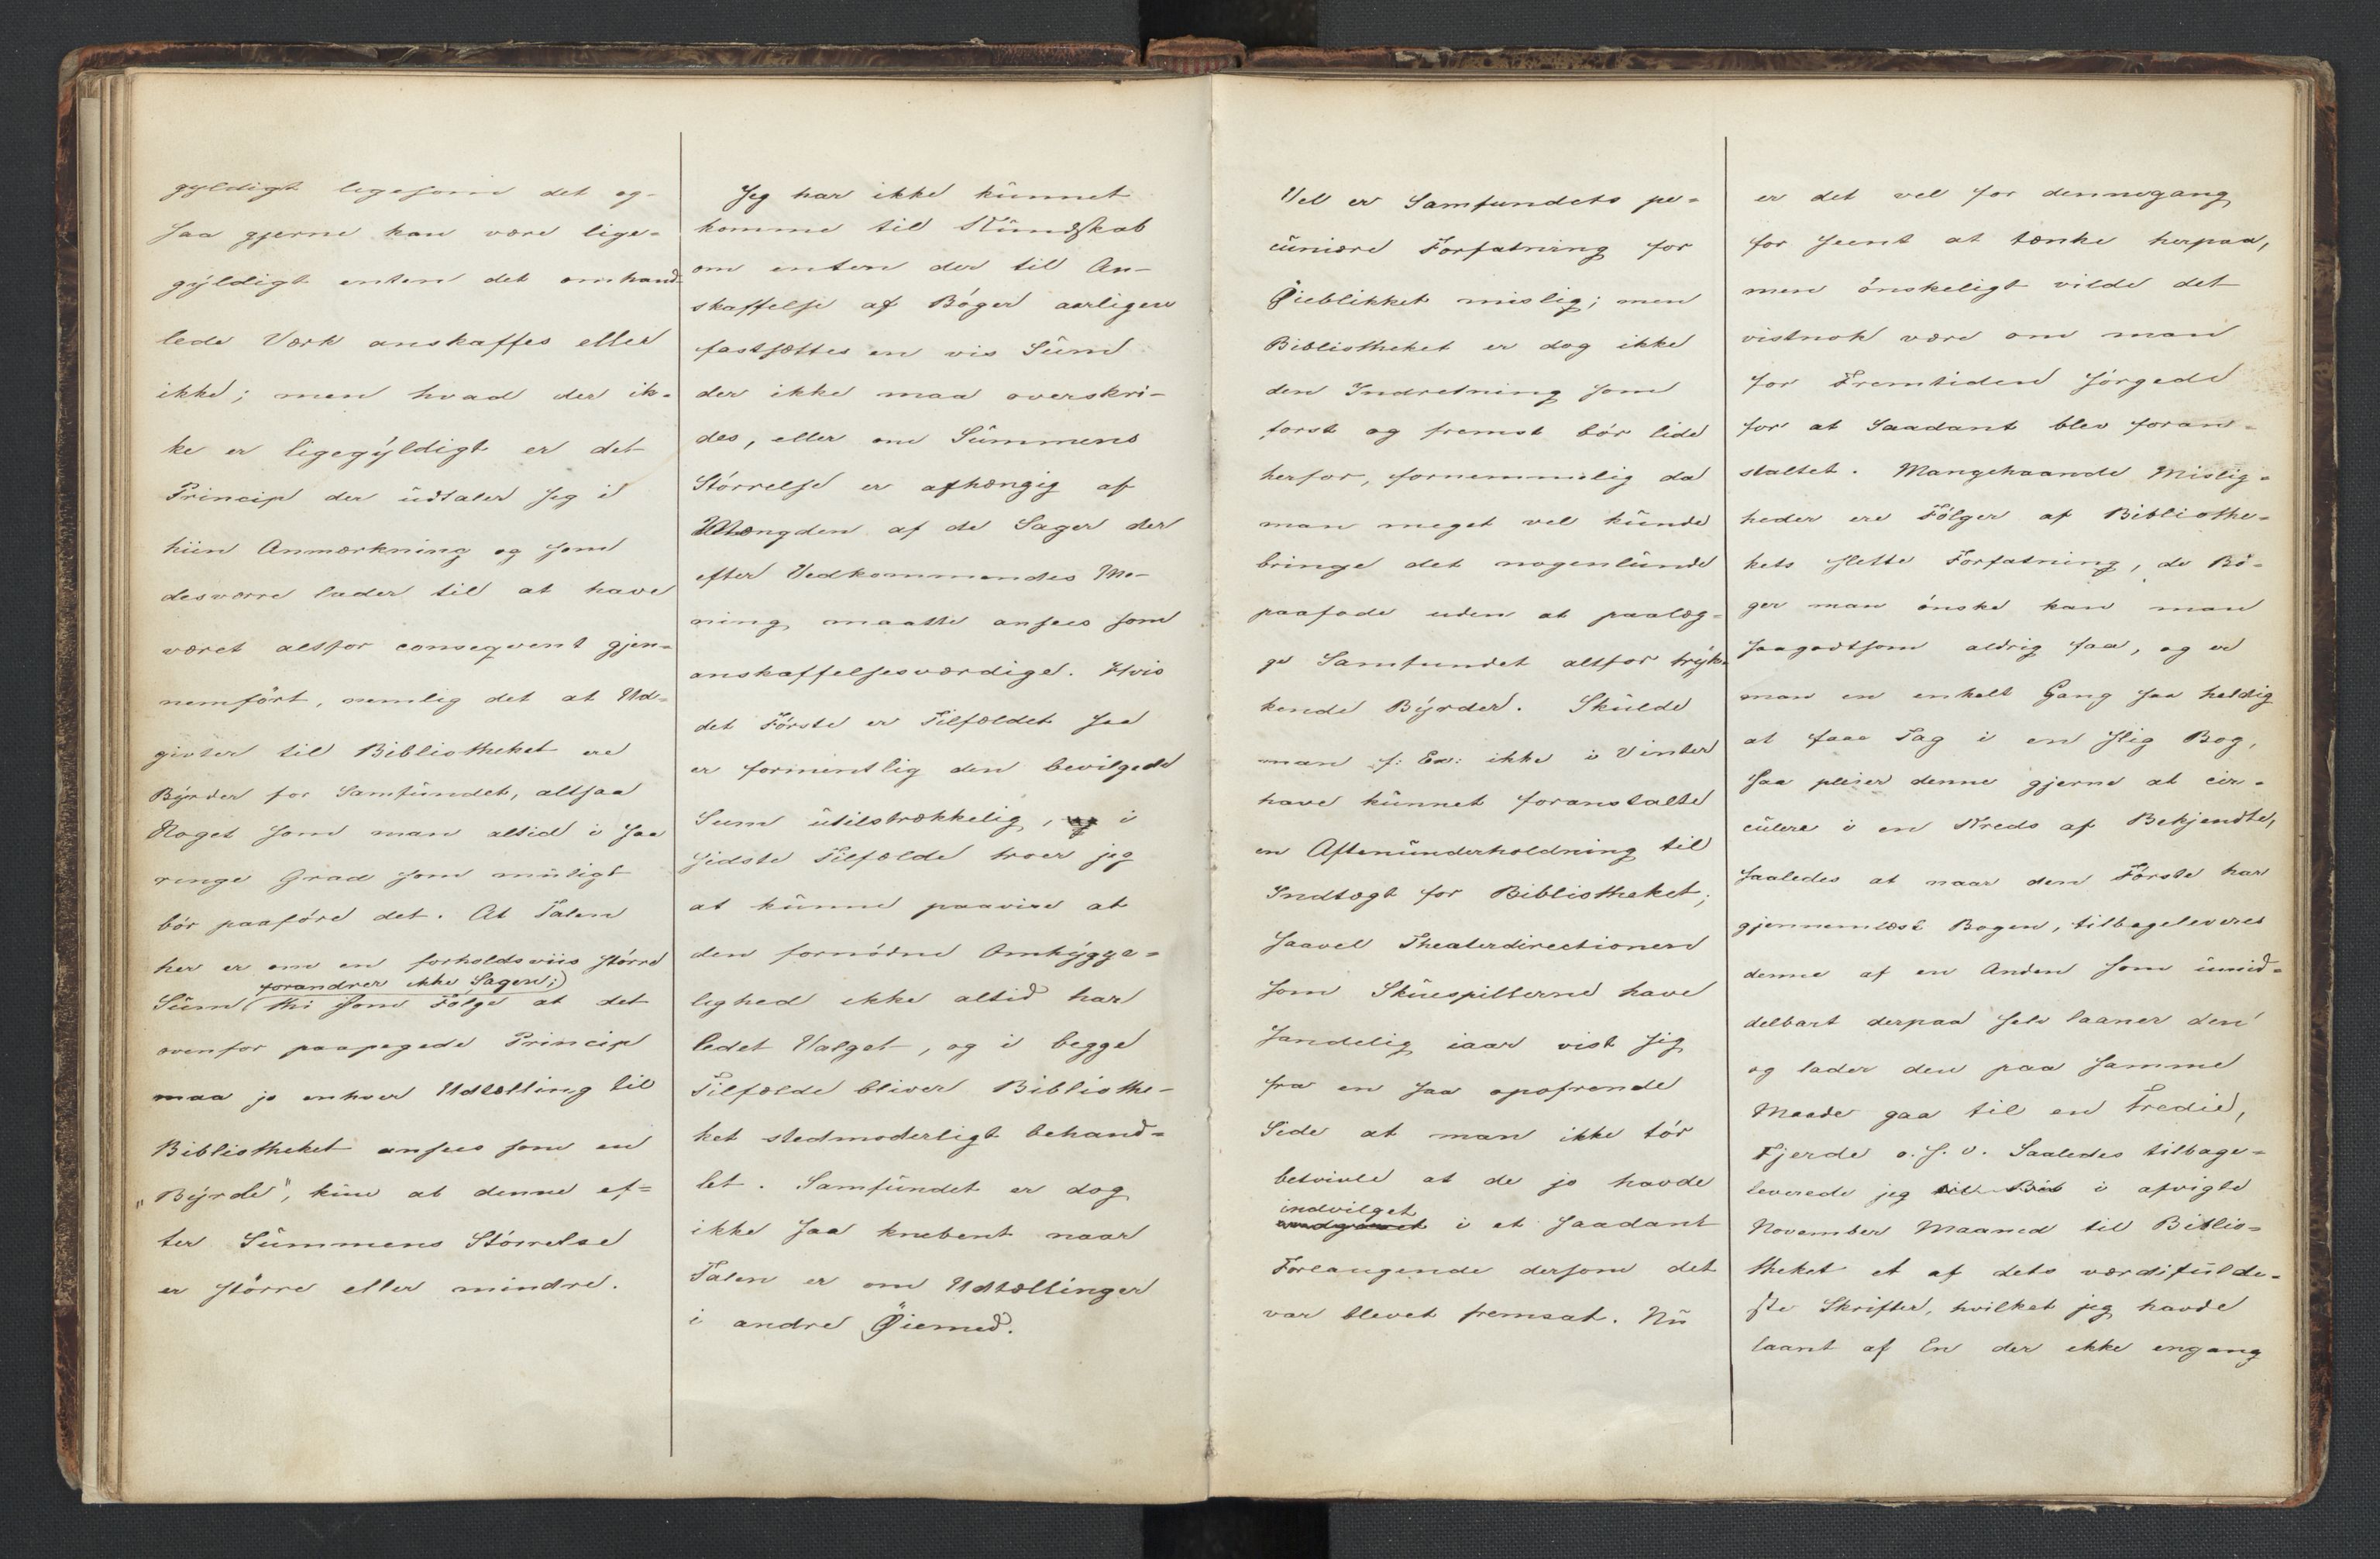 gyldigt ligesom det og-
saa gjerne kan være lige-
gyldigt enten det omhand-
lede Værk anskaffes eller
ikke; men hvad der ik-
ke er ligegyldigt er det
Princip der udtaler sig i
hiin Anmærkning og som
desværre lader til at have
været altfor conseqvent gjen-
nemført, nemlig det at Ud-
givter til Bibliotheket ere
Byrder for Samfundet, altsaa
Noget som man altid i saa
ringe Grad som muligt
bör paaføre det. At Talen
her er om en forholdsviis större
forandrer ikke Sagen;
Sum thi som Følge at det
ovenfor paapegede Princip
maa jo enhver Udtælling til
Bibliotheket ansees som en
"Byrde", kun at denne ef-
ter Summens Störrelse
er större eller mindre.
Jeg har ikke kunnet
komme til Kundskab
om enten der til An-
skaffelse af Bøger aarligen
fastsættes en vis Sum
der ikke maa overskri-
des, eller om Summens
Störrelse er afhængig af
Mængden af de Sager der
efter Vedkommendes Me-
ning maatte ansees som
anskaffelsesværdige. Hvis
det Første er Tilfældet saa
er formentlig den bevilgede
Sum utilstrækkelig, og i
sidste Tilfælde troer jeg
at kunne paavise at
den fornødne Omhygge-
lighed ikke altid har
ledet Valget, og i begge
Tilfælde bliver Bibliothe-
ket stedmoderligt behand-
let. Samfundet er dog
ikke saa knebent naar
Talen er om Udtællinger
i andre Øiemed.
Vel er Samfundets pe-
cuniære Forfatning for
Øieblikket mislig; men
Bibliotheket er dog ikke
den Indretning som
først og fremst bör lide
herfor, fornemmelig da
man meget vel kunde
bringe det nogenlunde
paafode uden at paalæg-
ge Samfundet altfor tryk-
kende Byrder. Skulde
man f: Ex: ikke i Vinter
have kunnet foranstalte
en Aftenunderholdning til
Indtægt for Bibliotheket;
saavel Theaterdirectionen
som Skuespillerne have
sandelig iaar vist sig
fra en saa opofrende
Side at man ikke tör
betvivle at de jo havde
indvilget
i et saadant
Forlangende dersom det
var blevet fremsat. Nu
er det vel for dennegang
for seent at tænke herpaa,
men ønskeligt vilde det
vistnok være om man
for Fremtiden sörgede
for at Saadant blev foran-
staltet. Mangehaande Mislig-
heder ere Følger af Bibliothe-
kets slette Forfatning, de Bø-
ger man ønske kan man
saagodtsom aldrig faa, og er
man en enkelt Gang saa heldig
at faae Tag i en slig Bog,
saa pleier denne gjerne at cir-
culere i en Kreds af Bekjendte,
saaledes at naar den Første har
gjennemlæst Bogen, tilbageleveres
denne af en Anden som umid-
delbart derpaa selv laaner den
og lader den paa samme
Maade gaa til en Tredie,
Fjerde o. s. v. Saaledes tilbage-
leverede jeg til Bib i afvigte
November Maaned til Biblio-
theket et af dets værdifulde-
ste Skrifter, hvilket jeg havde
laant af En der ikke engang